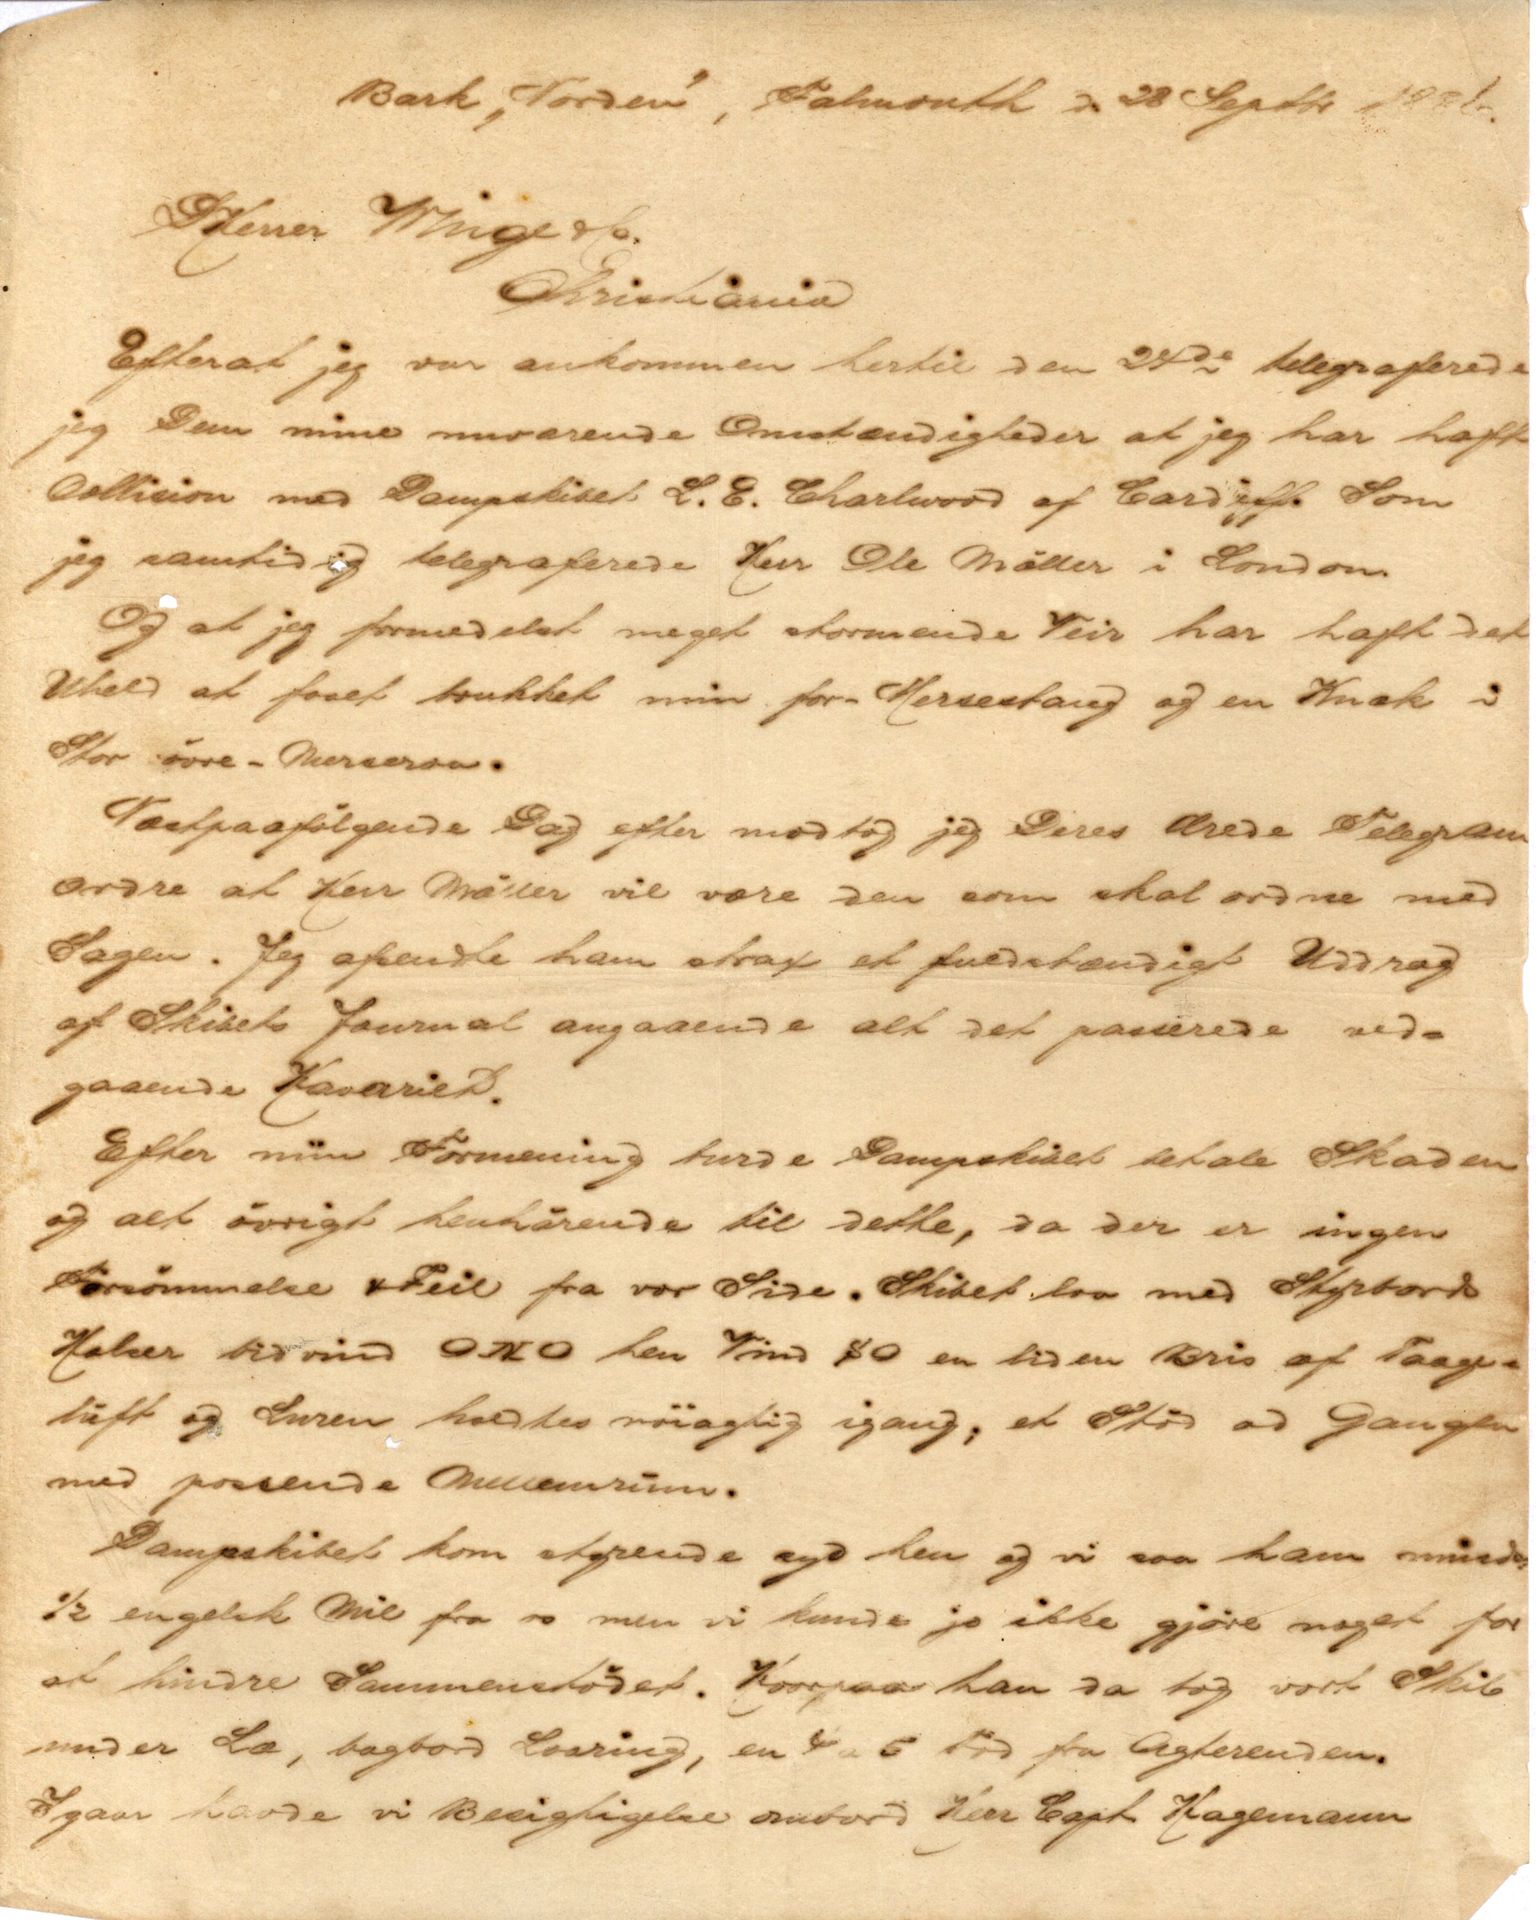 Bark „Norden", Falmouth d. 28 Septbr
D'Herrer Winge & Co.
Christiania
Efterat jeg var ankommen hertil den 24de telegraferede
jeg Dem mine nuværende Omstændigheder at jeg har haft
Collision med Dampskibet L. E. Charlwood af Cardiff. Som
jeg samtidig telegraferede Herr Ole Möller i London.
Og at jeg formedelst meget stormende Veir har haft det
Uheld at faaet brukket min for-Mersestang og en Knæk i
Stor övre-Merseraa.
Næstpaafölgende Dag efter modtog jeg Deres ærede Telegram
ordre at Herr Möller vil være den som skal ordne med
Sagen. Jeg afsendte ham strax et fuldstændigt Uddrag
af Skibets Journal angaaende alt det passerede ved-
gaaende Havariet.
Efter min Formening burde Dampskibet betale Skaden
og alt övrigt henhörende til dette, da der er ingen
Forsömmelse & Feil fra vor Side. Skibet laa med Styrbords
Halser bidvind ONO hen Vind SO en liden Bris af Taage-
luft og Luren holdtes nöiagtig igang, et Stöd ad Gangen
med passende Mellemrum.
Dampskibet kom styrende syd hen og vi saa ham mindst
1/2 engelsk Mil fra os men vi kunde jo ikke gjöre noget for
at hindre Sammenstödet. Hvorpaa han da tog vort Skib
under Læ, bagbord Laaring, en 4 a 5 Föd fra Agterenden.
Igaar havde vi Besigtigelse ombord Herr Capt. Hagemann